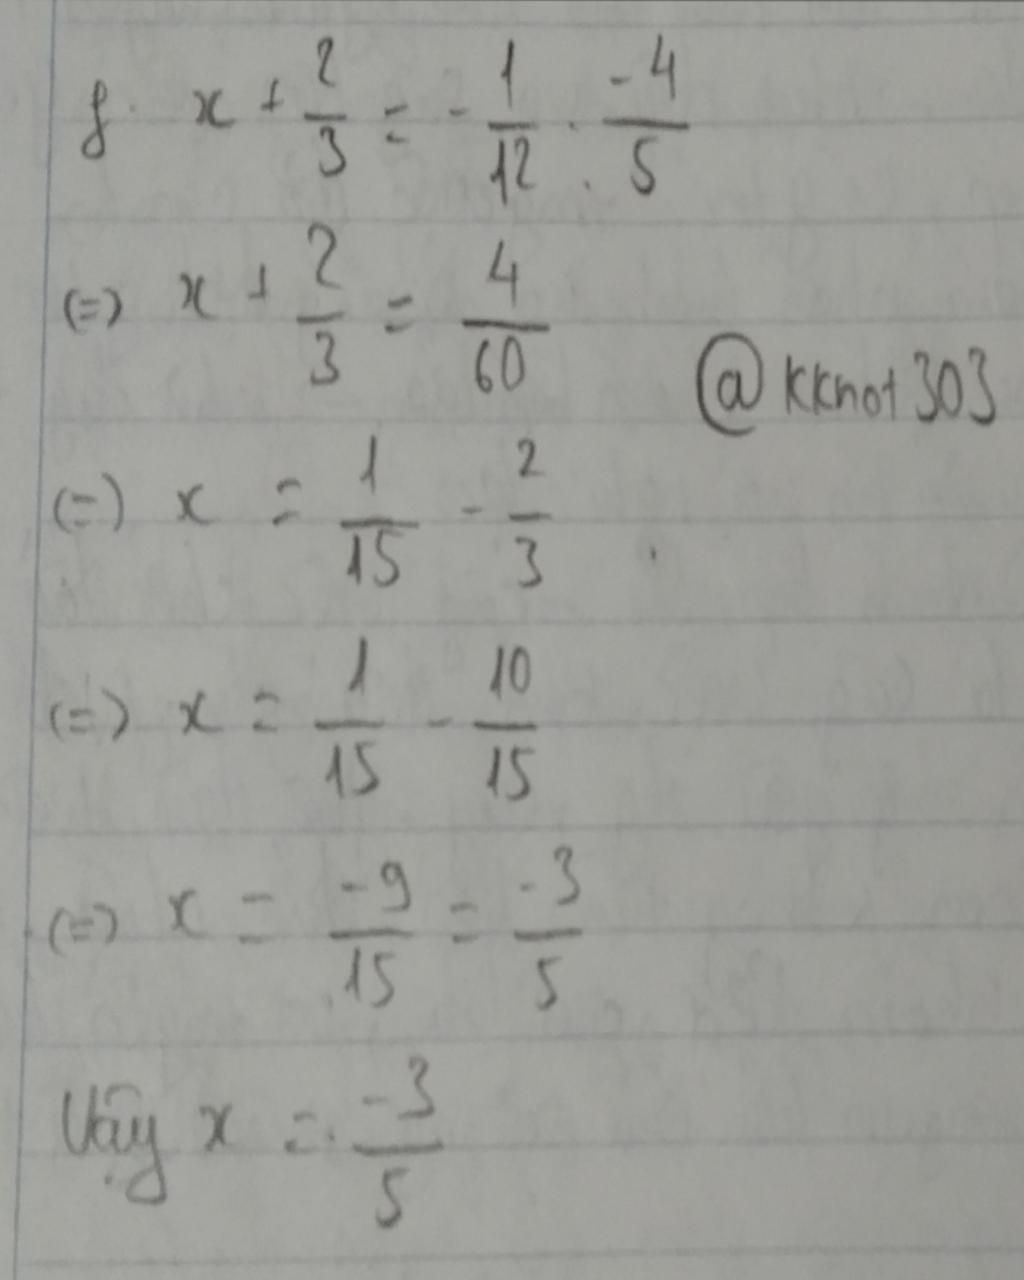 f. x + 2/3 = - 1/12 . -4/5
(=) x + 2/3 = 4/60
@kknot303
(=) x = 1/15 - 2/3
(=) x = 1/15 - 10/15
(=) x = -9/15 = -3/5
Vậy x = -3/5